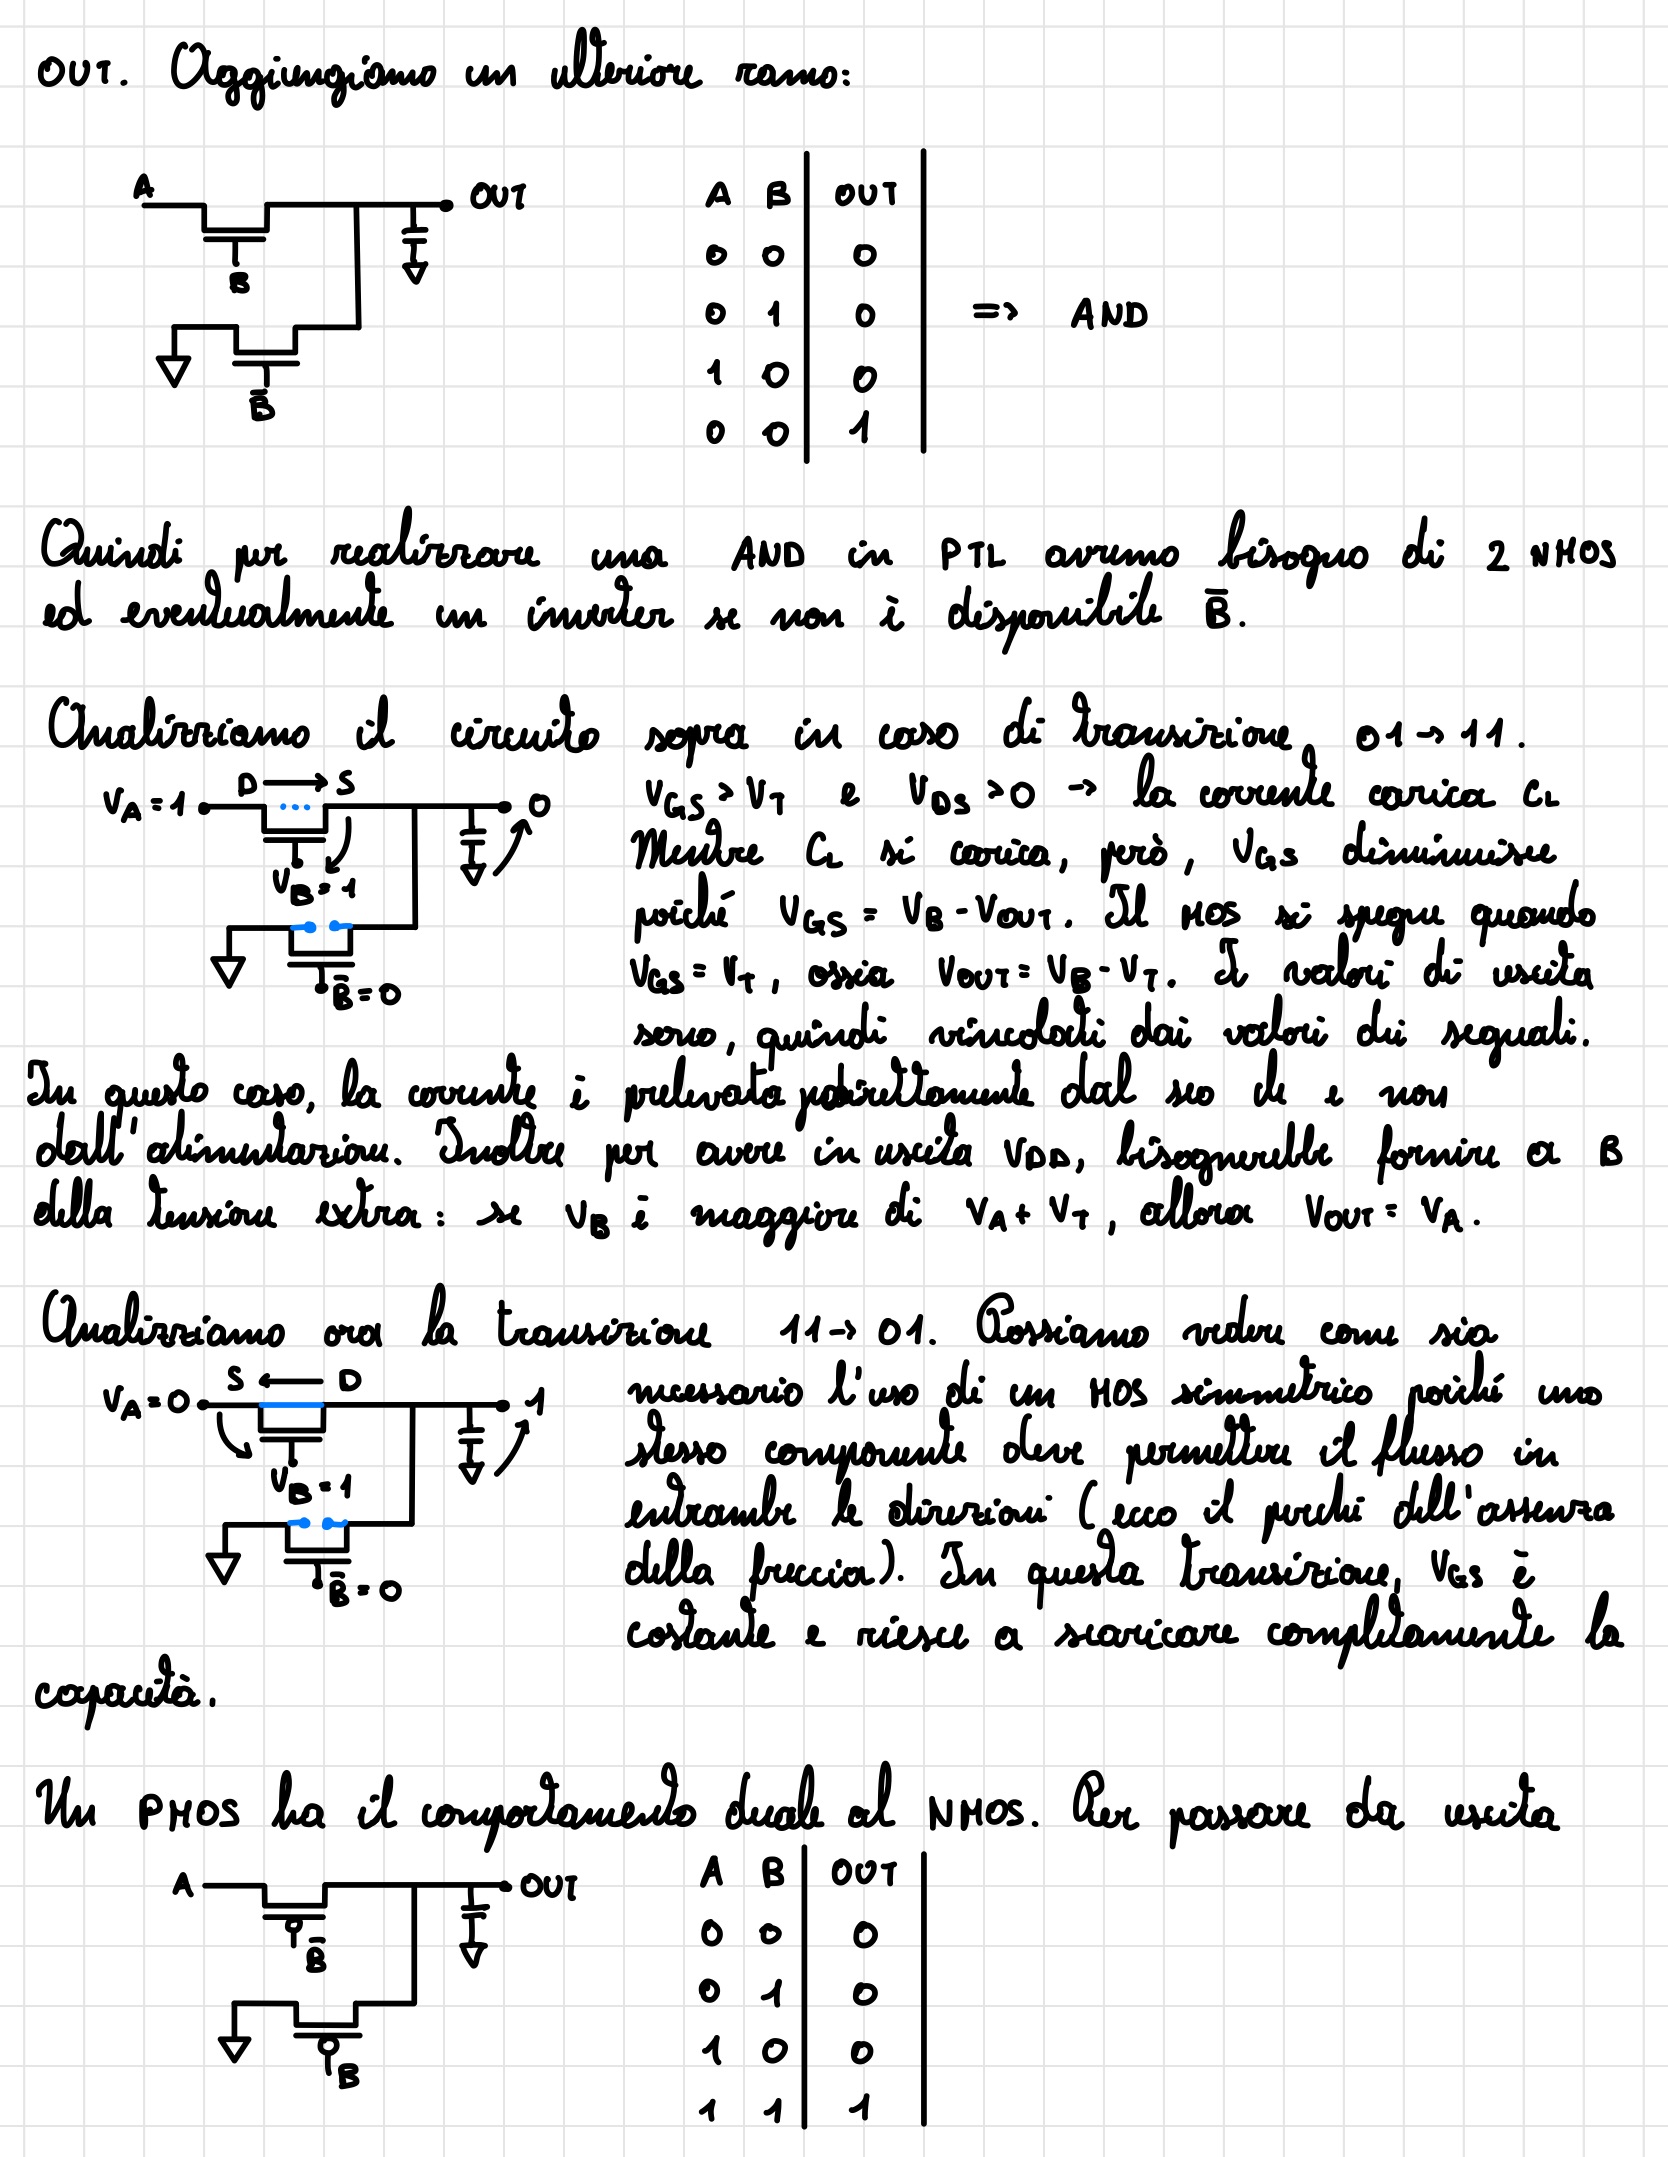 OUT. Aggiungiamo un ulteriore ramo:
A
OUT
B
B̅
A B OUT
0 0 0
0 1 0 => AND
1 0 0
0 0 1
Quindi per realizzare una AND in PTL avremo bisogno di 2 NMOS
ed eventualmente un inverter se non è disponibile B̅.
Analizziamo il circuito sopra in caso di transizione 01→11.
D → S
V_A = 1
0
V_B = 1
B̅ = 0
V_GS > V_T e V_DS > 0 → la corrente carica C_L
Mentre C_L si carica, però, V_GS diminuisce
poiché V_GS = V_B - V_OUT. Il MOS si spegne quando
V_GS = V_T, ossia V_OUT = V_B - V_T. I valori di uscita
sono, quindi vincolati dai valori dei segnali.
In questo caso, la corrente è prelevata direttamente dal e non
dall'alimentazione. Inoltre per avere in uscita V_DD, bisognerebbe fornire a B
della tensione extra: se V_B è maggiore di V_A + V_T, allora V_OUT = V_A.
Analizziamo ora la transizione 11→01. Possiamo vedere come sia
S ← D
V_A = 0
1
V_B = 1
B̅ = 0
necessario l'uso di un MOS simmetrico poiché uno
stesso componente deve permettere il flusso in
entrambe le direzioni (ecco il perché dell'assenza
della freccia). In questa transizione, V_GS è
costante e riesce a scaricare completamente la
capacità.
Un PMOS ha il comportamento duale al NMOS. Per passare da uscita
A
OUT
B̅
B
A B OUT
0 0 0
0 1 0
1 0 0
1 1 1